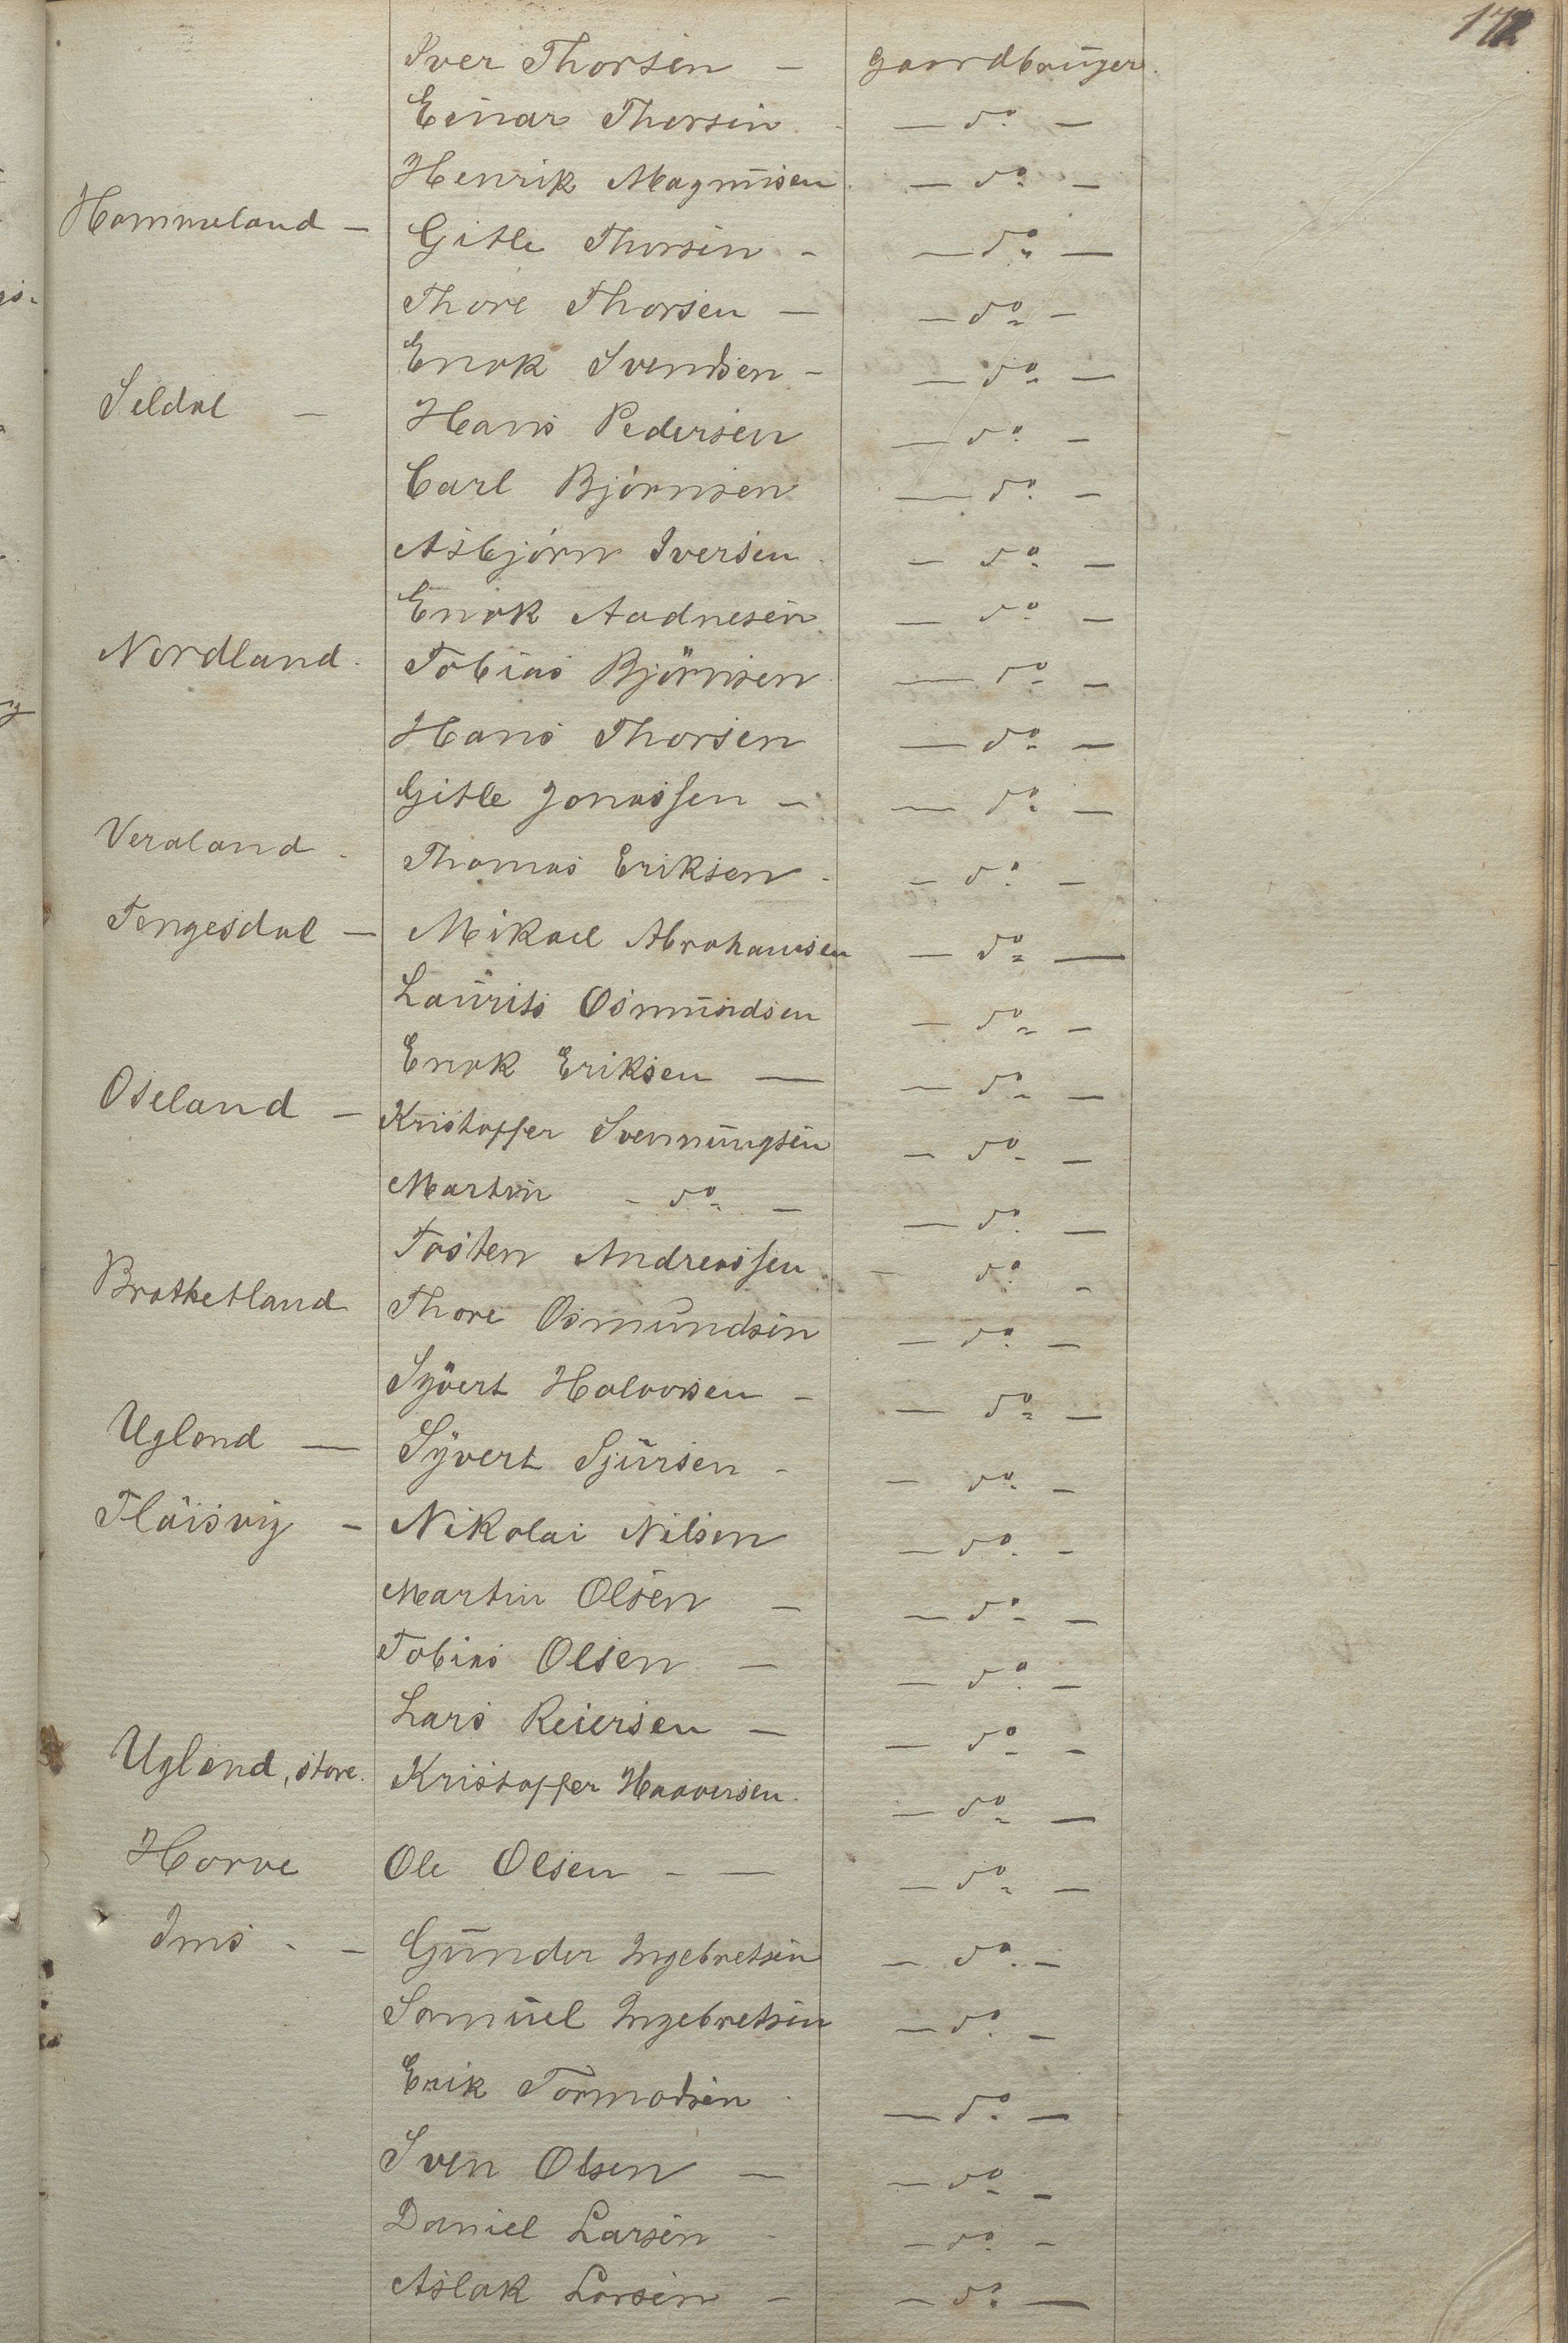 172
Iver Thorsen — gaardbruger.
Einar Thorsen — do —
Henrik Magnusen — do —
Hommeland — Gitle Thorsen - — do —
Thore Thorsen — — do —
Enok Svendsen - — do —
Seldal — Hans Pedersen — do —
Carl Bjørnsen — do —
Asbjørn Iversen — do —
Enok Aadnesen — do —
Nordland. Tobias Bjørnsen — do —
Hans Thorsen — do —
Gitle Jonassen — — do —
Veraland. Thomas Eriksen - — do —
Tengesdal — Mikael Abrahamsen — do —
Laurits Osmundsen — do —
Enok Eriksen — — do —
Oseland — Kristoffer Svenningsen — do —
Martin - do — — do —
Tosten Andreassen - do -
Brathetland Thore Osmundsen — do —
Syvert Halvorsen - — do —
Ugland — Syvert Sjursen - — do —
Fløisvig — Nikolai Nilsen — do -
Martin Olsen — — do —
Tobias Olsen — — do —
Lars Reiersen — — do —
Ugland, store. Kristoffer Haaversen. — do —
Horve Ole Olsen - — — do —
Ims - — Gunder Ingebretsen — do. —
Samuel Ingebretsen — do —
Erik Tormodsen - — do —
Sven Olsen — — do —
Daniel Larsen - — do -
Aslak Larsen - — do —